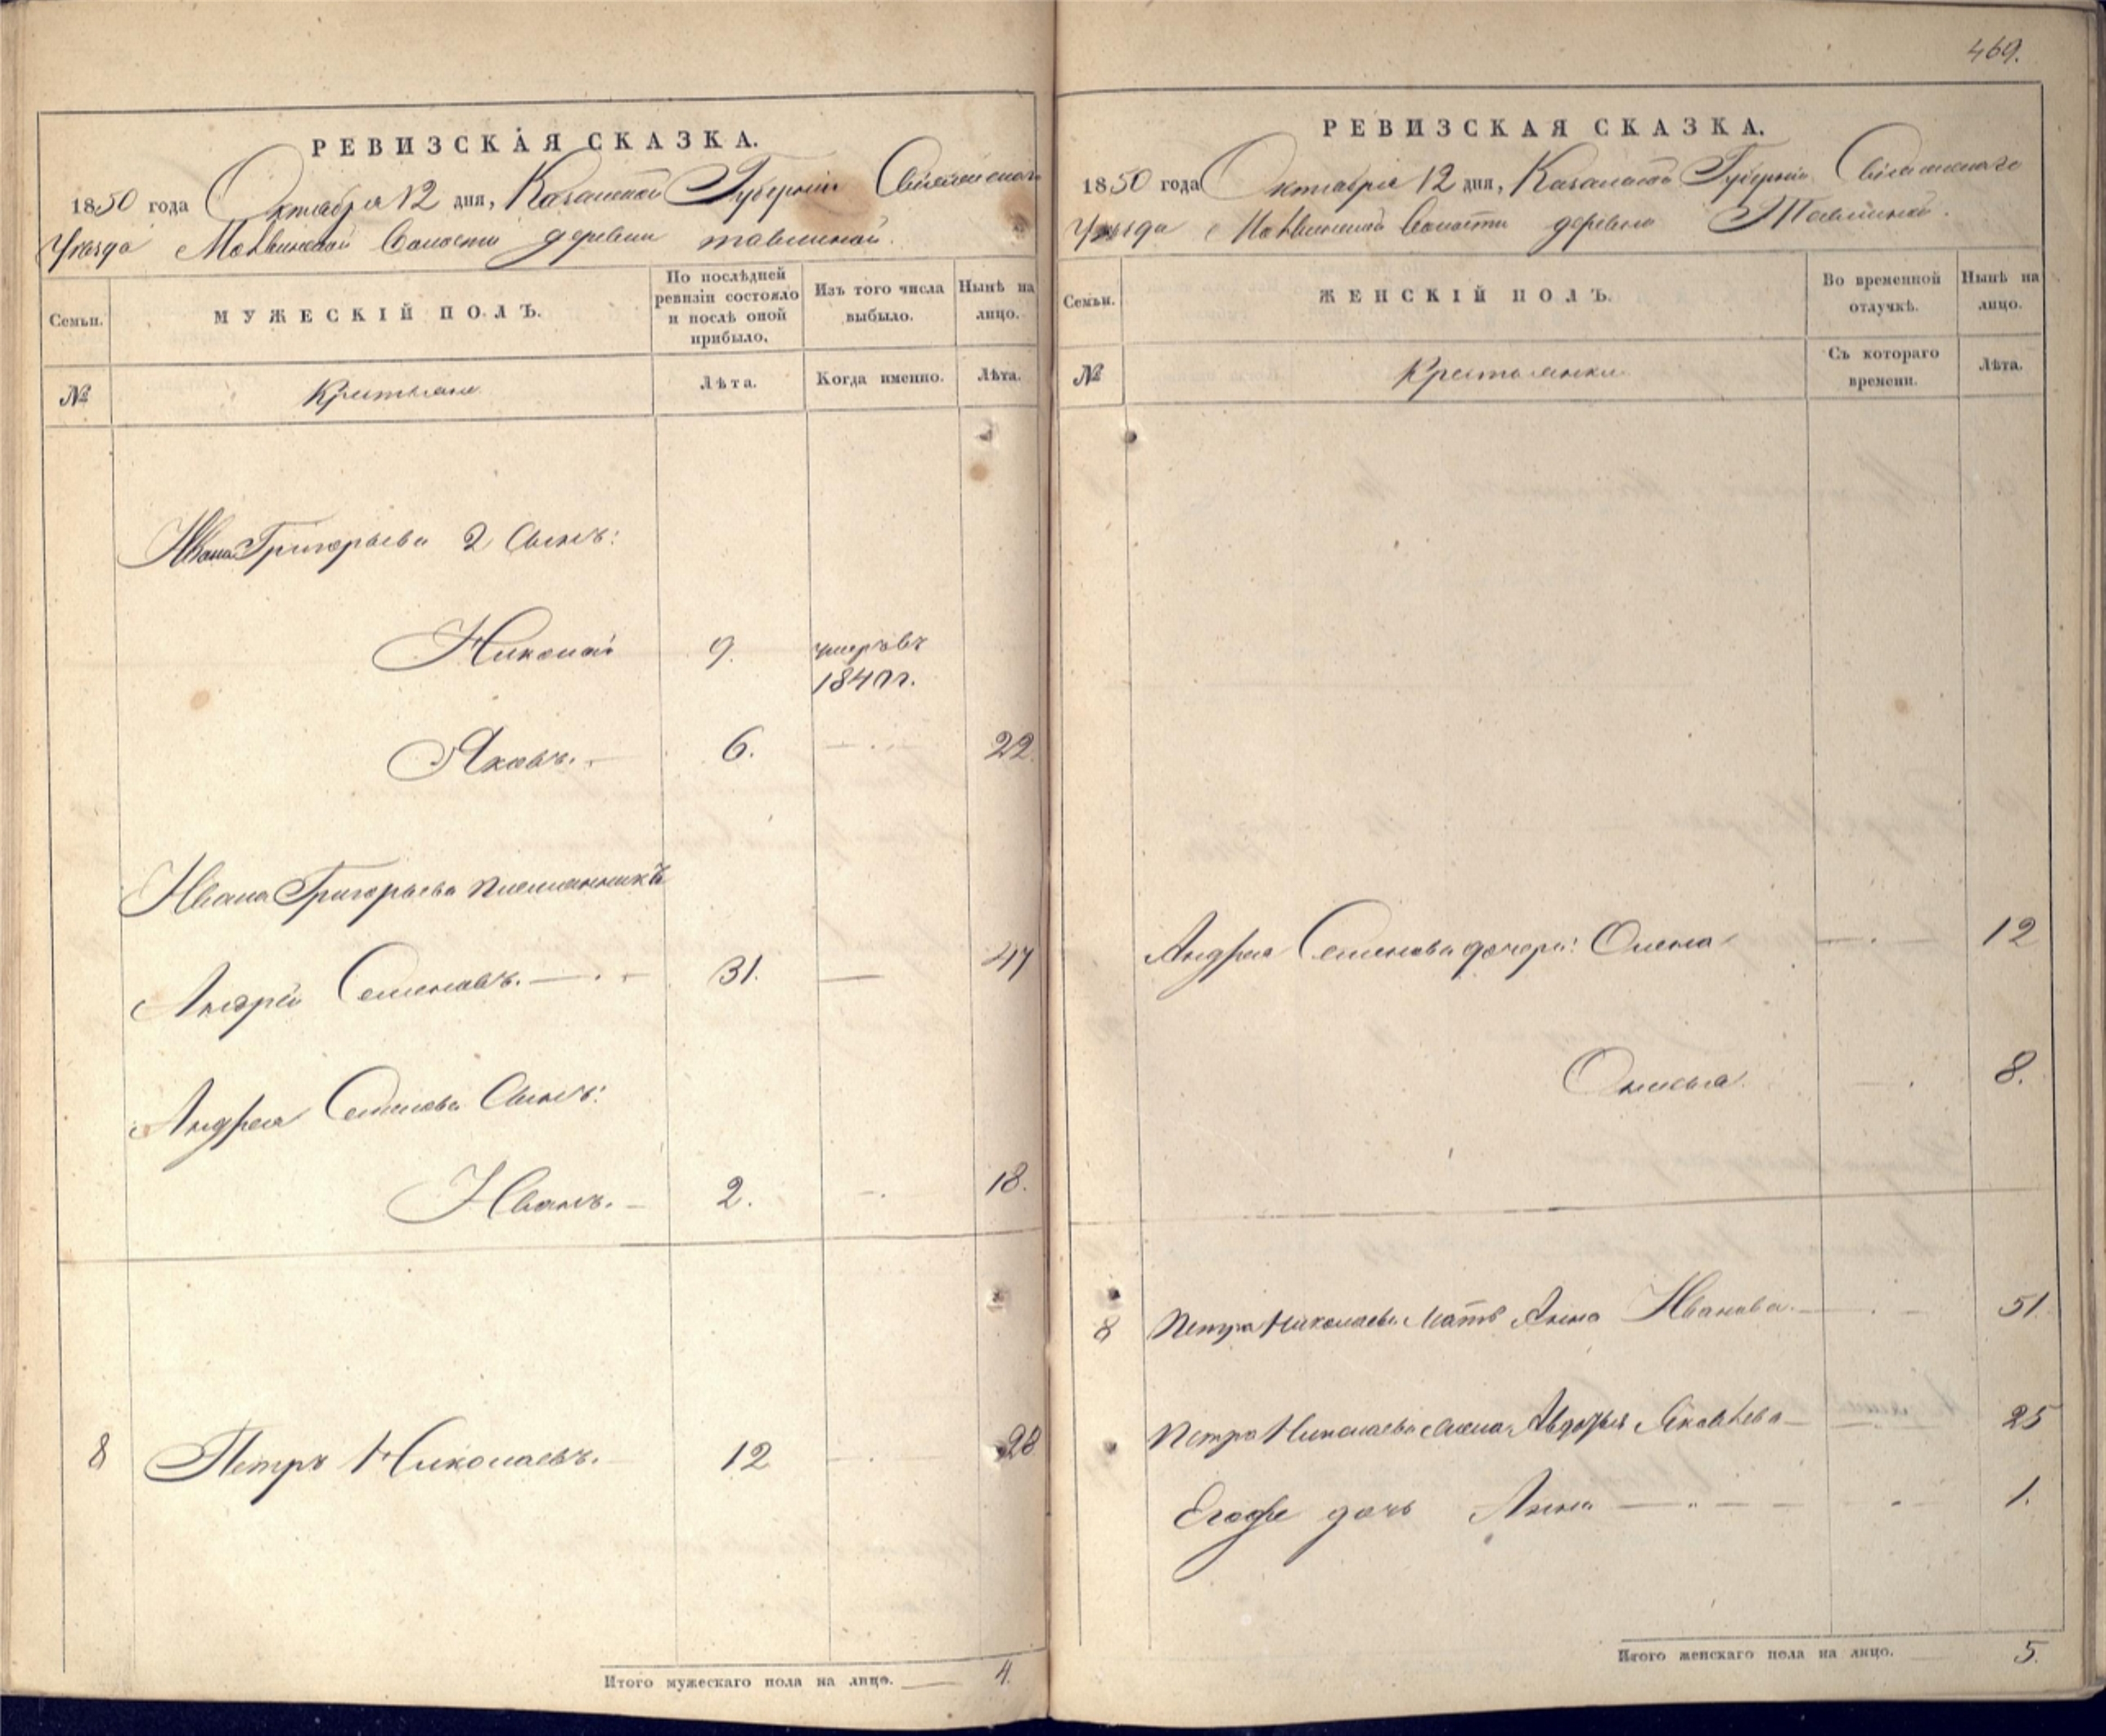 РЕВИЗСКАЯ СКАЗКА.
1850 года Октября 12 дня, Казанской Губернии Свіяжскаго
Уѣзда Моквинской Волости деревни
МУЖЕСКІЙ ПОЛЪ.
Семьи.
По послѣдней ревизіи состояло и послѣ оной прибыло.
Изъ того числа выбыло.
Нынѣ на лицо.
№
Крестьяне
Лѣта.
Когда именно.
Лѣта.
Ивана Григорьева 2 Сынъ:
Николай 9. умеръ въ
184 г.
Яковъ. 6. 22
Ивана Григорьева племянникъ
Андрей Семеновъ. 31. 47
Андрея Семенова Сынъ:
Иванъ. 2. 18.
8 Петръ Николаевъ. 12 28
Итого мужескаго пола на лицо. 4.
469.
РЕВИЗСКАЯ СКАЗКА.
1850 года Октября 12 дня, Казанской Губерніи Свіяжскаго
Уѣзда Моквинской Волости деревни
Семьи.
ЖЕНСКІЙ ПОЛЪ.
Во временной отлучкѣ.
Нынѣ на лицо.
№
Крестьянки
Съ котораго времени.
Лѣта.
Андрея Семенова дочери: Олена 12
Анисья 8.
8 Петра Николаева Мать Анна Иванова. 51
Петра Николаева жена Авдотья Яковлева 25
дочь Анна 1.
Итого женскаго пола на лицо. 5.